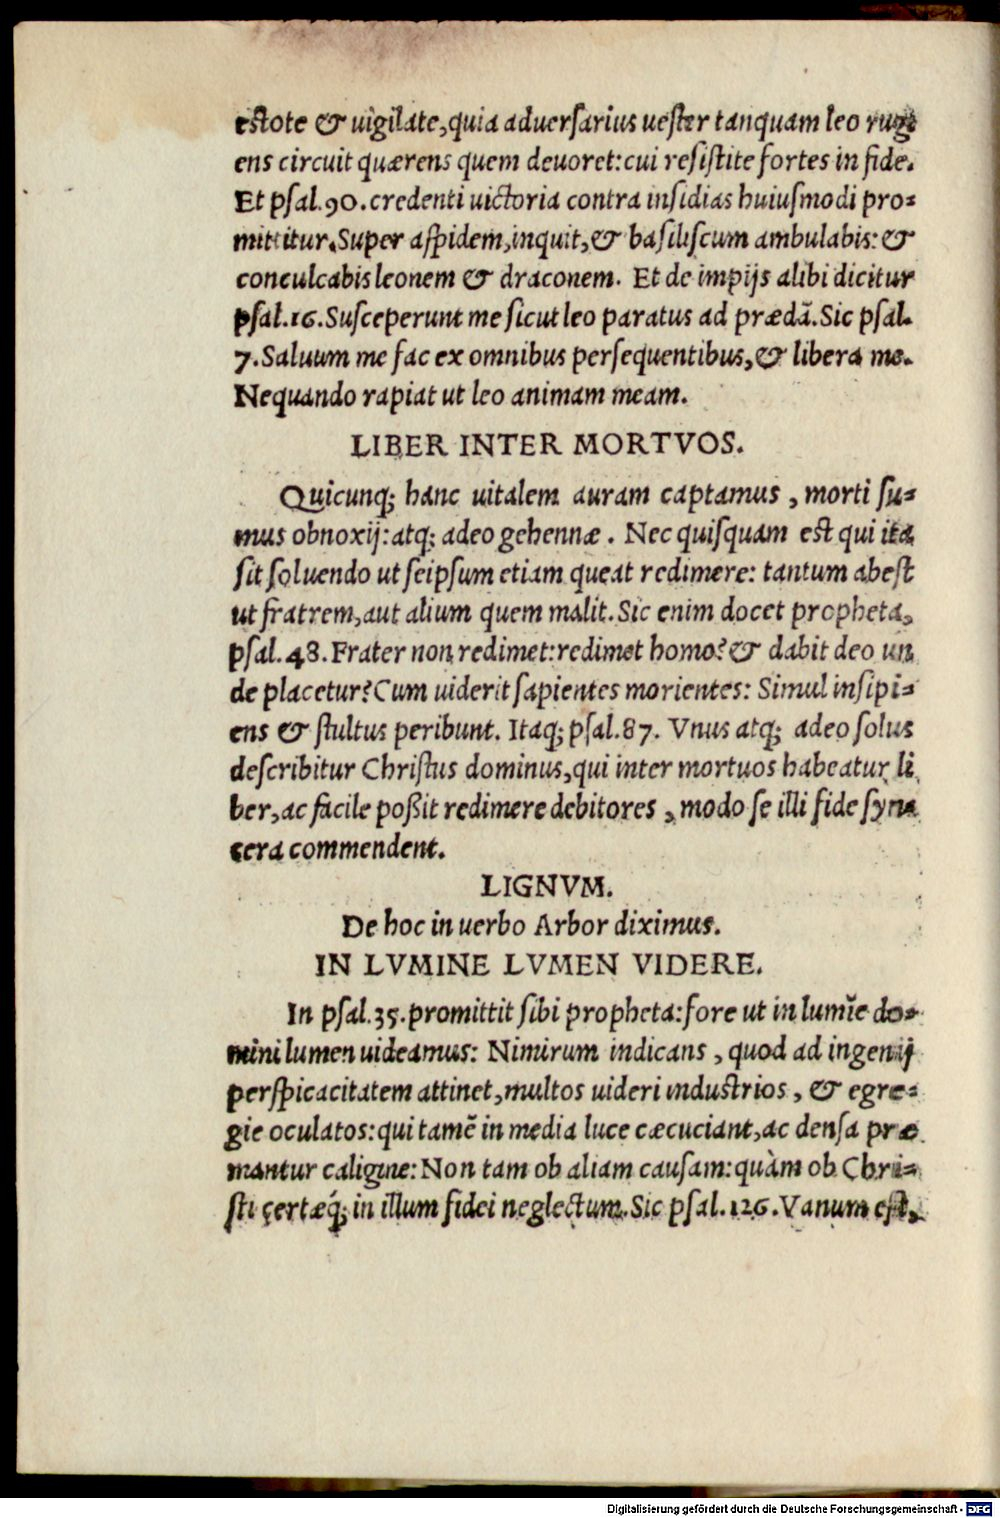 estote & uigilate, quia aduersarius uester tanquam leo rugi
ens circuit quærens quem deuoret: cui resistite fortes in fide.
Et psal. 90. credenti uictoria contra insidias huiusmodi pro-
mittitur. Super aspidem, inquit, & basiliscum ambulabis: &
conculcabis leonem & draconem. Et de impijs alibi dicitur
psal. 16. Susceperunt me sicut leo paratus ad prædā. Sic psal.
7. Saluum me fac ex omnibus persequentibus, & libera me.
Nequando rapiat ut leo animam meam.
LIBER INTER MORTVOS.
Quicunq; hanc uitalem auram captamus, morti su-
mus obnoxij: atq; adeo gehennæ. Nec quisquam est qui ita
sit soluendo ut seipsum etiam queat redimere: tantum abest
ut fratrem, aut alium quem malit. Sic enim docet propheta,
psal. 48. Frater non redimet: redimet homo? & dabit deo un
de placetur? Cum uiderit sapientes morientes: Simul insipi-
ens & stultus peribunt. Itaq; psal. 87. Vnus atq; adeo solus
describitur Christus dominus, qui inter mortuos habeatur li
ber, ac facile poßit redimere debitores, modo se illi fide syn-
cera commendent.
LIGNVM.
De hoc in uerbo Arbor diximus.
IN LVMINE LVMEN VIDERE.
In psal. 35. promittit sibi propheta: fore ut in lumīe do-
mini lumen uideamus: Nimirum indicans, quod ad ingenij
perspicacitatem attinet, multos uideri industrios, & egre-
gie oculatos: qui tamē in media luce cæcuciant, ac densa præ
mantur caligine: Non tam ob aliam causam: quàm ob Chri-
sti certæq́; in illum fidei neglectum. Sic psal. 126. Vanum est,
Digitalisierung gefördert durch die Deutsche Forschungsgemeinschaft - DFG